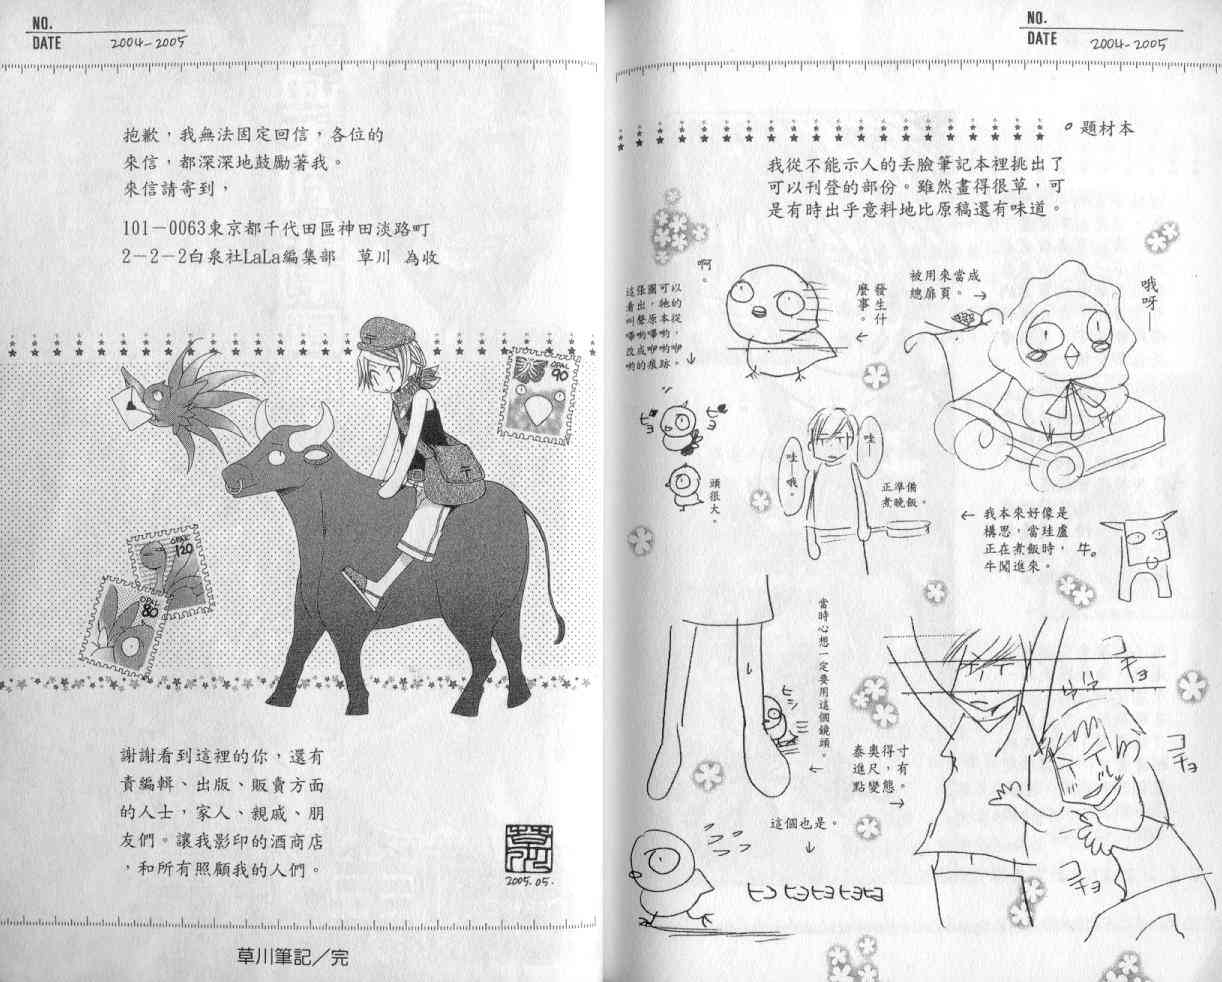 NO.
DATE 2004-2005
抱歉，我無法固定回信，各位的
來信，都深深地鼓勵著我。
來信請寄到，
101－0063東京都千代田區神田淡路町
2－2－2白泉社LaLa編集部　草川　為收
OPAL
90
OPAL
120
OPAL
80
謝謝看到這裡的你，還有
責編輯、出版、販賣方面
的人士，家人、親戚、朋
友們。讓我影印的酒商店
，和所有照顧我的人們。
草川
2005.05.
草川筆記／完
NO.
DATE 2004-2005
題材本
我從不能示人的丟臉筆記本裡挑出了
可以刊登的部份。雖然畫得很草，可
是有時出乎意料地比原稿還有味道。
哦呀—
被用來當成
總扉頁。→
發生什
麼事。
←
啊。
這張圖可以
看出，牠的
叫聲原本從
改成咿喲咿
喲的痕跡。↓
ピヨ
ピヨ
頭很大。
哇—
哇
哦。
正準備
煮晚飯。
← 我本來好像是
構思，當珪盧
正在煮飯時，
牛闖進來。
牛。
當時心想一定要用這個鏡頭。
←
ヒシ
泰奧得寸
進尺，有
點變態。
→
コチョ
コチョ
コチョ
這個也是。
↓
ヒコ ヒヨヒヨ ヒヨヒヨ